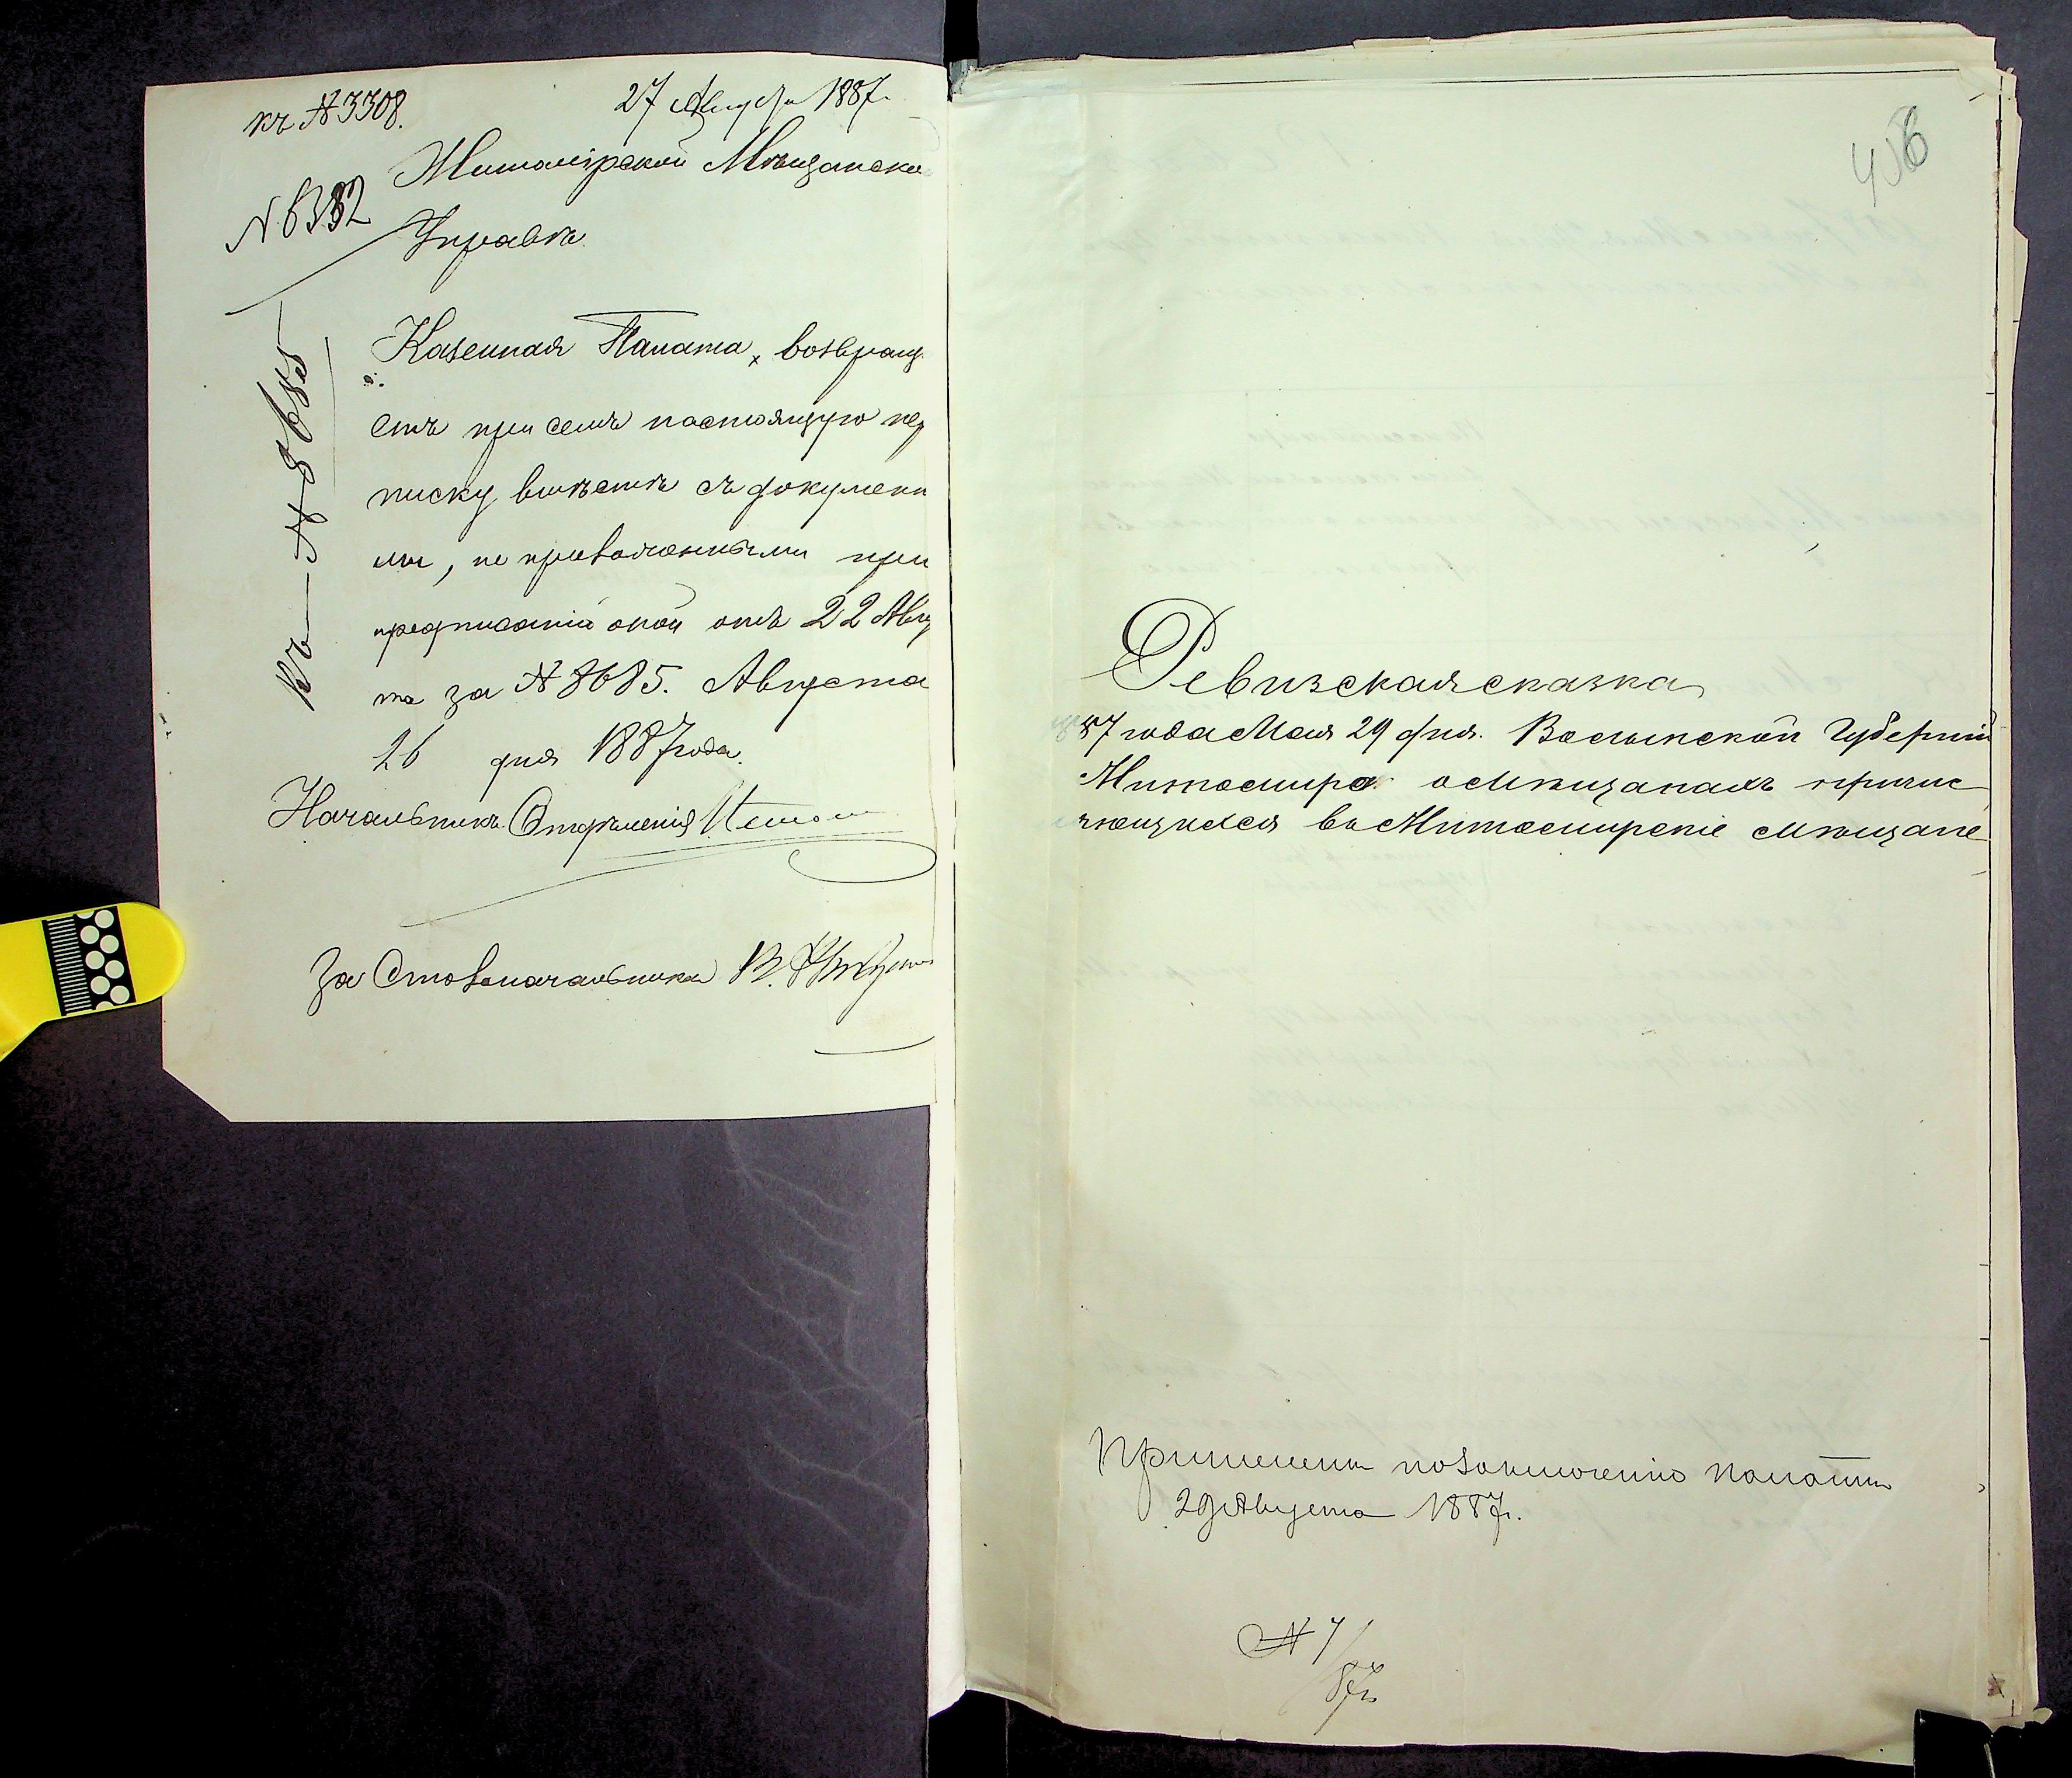 къ № 3308.
27 Августа 1887
Житомірской Мѣщанской
№ 6382
Управѣ
Къ № 8685
Казенная Палата, возвращ
етъ при семъ настоящую пере
писку вмѣстѣ съ документ
ми, не приложенными при
предписаніи оной отъ 22 Авгу
та за № 8685. Августа
26 дня 1887 года.
Начальникъ Отдѣленія
За Столоначальника В.
Ревизская сказка
1887 года Мая 29 дня. Волынской Губерніи
Житомира о мѣщанахъ причис
ляющихся въ Житомирскіе мѣщане
Причислены по заключенію палаты
29 Августа 1887 г.
№ 7/87 г.